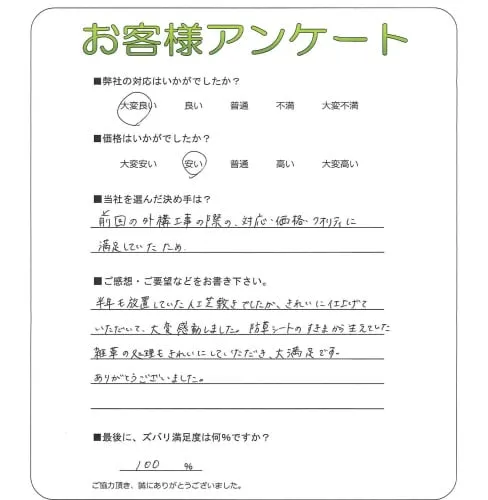 お客様アンケート
■弊社の対応はいかがでしたか?
大変良い 良い 普通 不満 大変不満
■価格はいかがでしたか?
大変安い 安い 普通 高い 大変高い
■当社を選んだ決め手は?
前回の外構工事の際の、対応・価格・クオリティに
満足していたため。
■ご感想・ご要望などをお書き下さい。
半年も放置していた人工芝敷きでしたが、きれいに仕上げて
いただいて、大変感動しました。防草シートのすきまから生えていた
雑草の処理もきれいにしていただき、大満足です。
ありがとうございました。
■最後に、ズバリ満足度は何%ですか?
100 %
ご協力頂き、誠にありがとうございました。